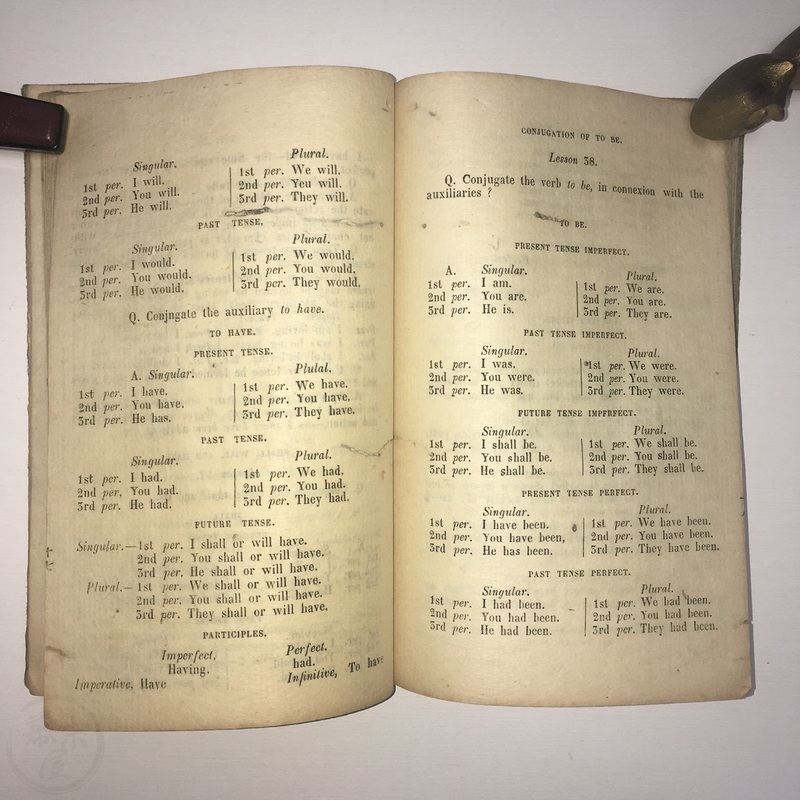 Singular. Plural.
1st per. I will. 1st per. We will.
2nd per. You will. 2nd per. You will.
3rd per. He will. 3rd per. They will.
PAST TENSE,
Singular. Plural.
1st per. I would. 1st per. We would.
2nd per. You would. 2nd per. You would,
3rd per. He would. 3rd per. They would.
Q. Conjngate the auxiliary to have.
TO HAVE.
PRESENT TENSE.
A. Singular. Plulal.
1st per. I have. 1st per. We have.
2nd per. You have. 2nd per. You have.
3rd per. He has. 3rd per. They have.
PAST TENSE.
Singular. Plural.
1st per. I had. 1st per. We had.
2nd per. You had. 2nd per. You had.
3rd per. He had. 3rd per. They had.
FUTURE TENSE.
Singular.—1st per. I shall or will have.
2nd per. You shall or will have.
3rd per. He shall or will have.
Plural.—1st per. We shall or will have.
2nd per. You shall or will have.
3rd per. They shall or will have.
PARTICIPLES.
Imperfect, Perfect.
Having. had.
Imperative, Have Infinitive, To have
CONJUGATION OF TO BE.
Lesson 38.
Q. Conjugate the verb to be, in connexion with the
auxiliaries ?
TO BE.
PRESENT TENSE IMPERFECT.
A. Singular. Plural.
1st per. I am. 1st per. We are.
2nd per. You are. 2nd per. You are.
3rd per. He is. 3rd per. They are.
PAST TENSE IMPERFECT.
Singular. Plural.
1st per. I was. 1st per. We were.
2nd per. You were. 2nd per. You were.
3rd per. He was. 3rd per. They were.
FUTURE TENSE IMPFRFECT.
Singular. Plural.
1st per. I shall be. 1st per. We shall be.
2nd per. You shall be. 2nd per. You shall be.
3rd per. He shall be. 3rd per. They shall be.
PRESENT TENSE PERFECT.
Singular. Plural.
1st per. I have been. 1st per. We have been.
2nd per. You have been, 2nd per. You have been.
3rd per. He has been. 3rd per. They have been.
PAST TENSE PERFECT.
Singular. Plural.
1st per. I had been. 1st per. We had been.
2nd per. You had been. 2nd per. You had been.
3rd per. He had been. 3rd per. They had been.